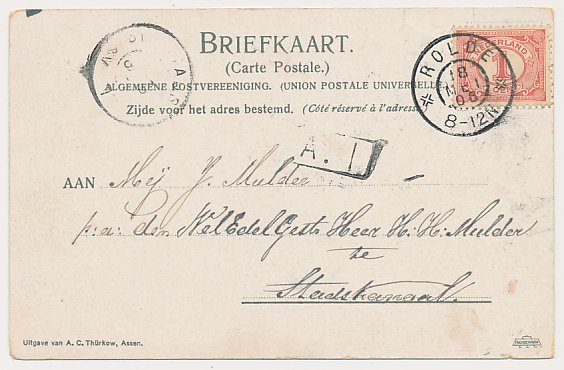 BRIEFKAART.
(Carte Postale.)
ALGEMEENE POSTVEREENIGING. (UNION POSTALE UNIVERSELLE)
Zijde voor het adres bestemd. (Côté réservé à l'adresse
NEDERLAND
1
ROLDE
18
MEI
06
8-12N
A. I
AAN Mej J. Mulder
p: a: den WelEdelGestr Heer H: H: Mulder
te
Stadskanaal.
Uitgave van A. C. Thürkow, Assen.